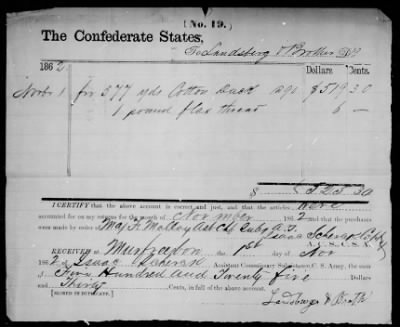 (No. 19.)
The Confederate States,
To Landsberg & Brother Dr.
1862 Dollars. Cents.
Novbr 1 for 577 yds Cotton Duck 90c $519 30
1 pound flax thread 6 —
$ 525 30
I CERTIFY that the above account is correct and just, and that the articles were
accounted for on my return for the month of November 1862 and that the purchases
were made by order Maj
A. C. S., C. S. A.
RECEIVED AT the 1st Nov
1862 of Isaac Scherck Assistant Commissary Subsistance, C. S. Army, the sum
of Five Hundred and Twenty five
Thirty Cents, in full of the above account.
[SIGNED IN DUPLICATE.] Landsberg & Broth